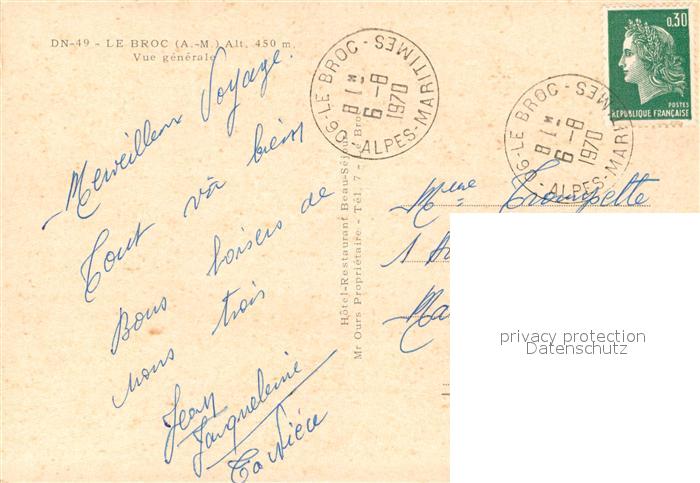 DN-49 - LE BROC (A.-M.) Alt. 450 m.
Vue générale
Merveilleux Voyage.
Tout va bien
Bons baisers de
nous trois
Jean
Jacqueleine
Hôtel-Restaurant Beau-Séjour
Mr Ours Propriétaire - Tél. 7 - Le Broc
06-LE BROC-
ALPES-MARITIMES
8 H
6 -8
1970
06-LE BROC-
ALPES-MARITIMES
8 H
6 -8
1970
0,30
POSTES
REPUBLIQUE FRANÇAISE
Mme Trompette
1
privacy protection
Datenschutz